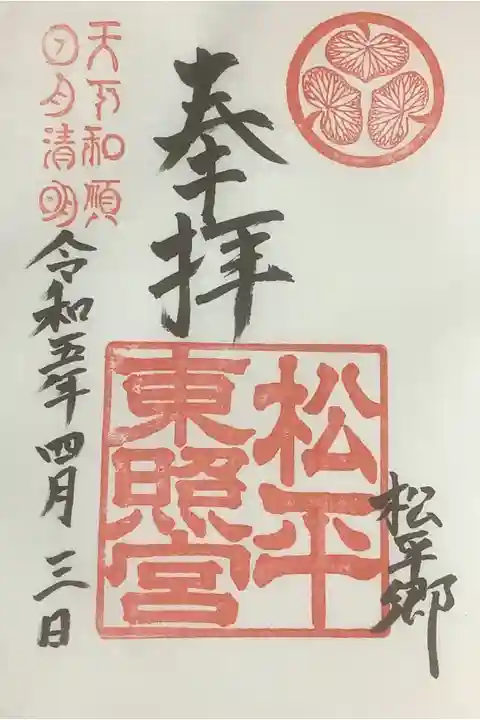 奉拝
松平
東照宮
松平郷
天下和順
日月清明
令和五年四月三日